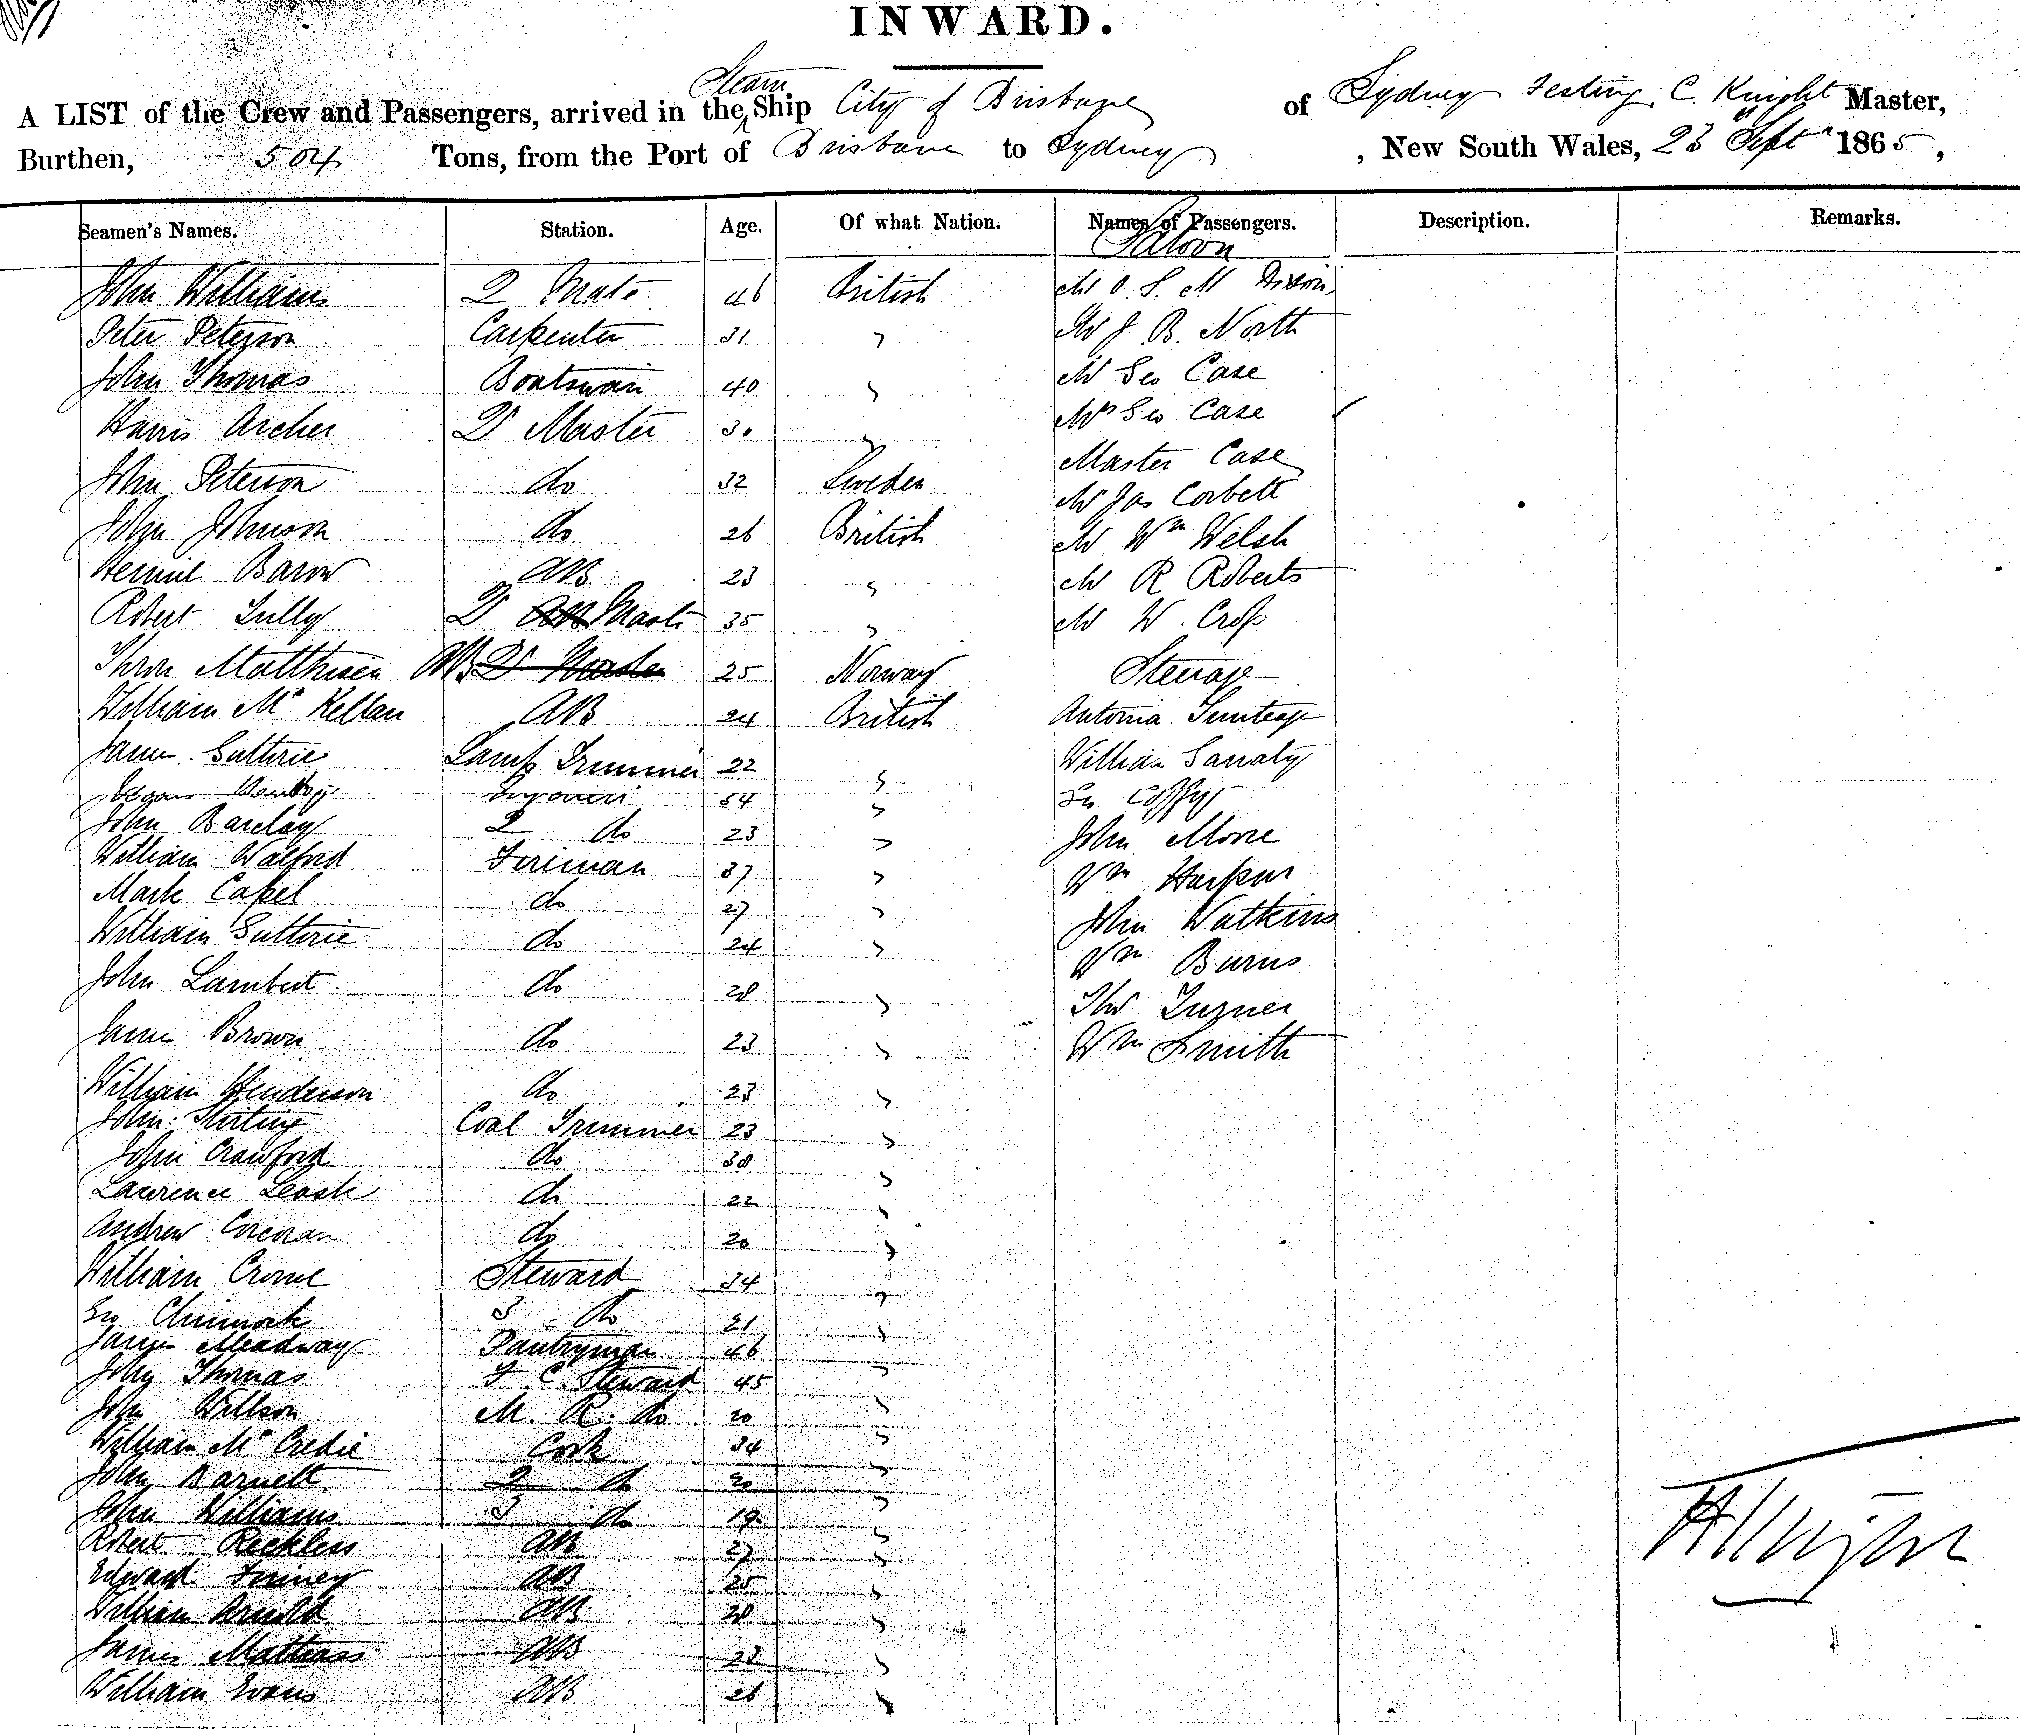 INWARD.
A LIST of the Crew and Passengers, arrived in the Steam Ship City of Brisbane of Sydney C. Knight Master,
Burthen, 504 Tons, from the Port of Brisbane to Sydney, New South Wales, 23 Sept 1865,
Seamen's Names. Station. Age. Of what Nation. Names of Passengers. Description. Remarks.
Saloon
John Williams 2 Mate 46 British Mr O. S. M Dixon
Peter Peterson Carpenter 31 " Mr J. B. North
John Thomas Boatswain 40 " Mr Geo Case
Harris Archer Qr Master 30 " Mrs Geo Case
Master Case
John Peterson do 32 Sweden Mr Jas Corbett
John Johnson do 26 British Mr Wm Welsh
Baron AB 23 " Mr R Roberts
Robert Tully Qr AB Master 35 " Mr W.
Matthisen AB Qr Master 25 Norway Steerage
William McKellan AB 24 British Antonia
James Guthrie Lamp Trimmer 22 " William
54 " Geo Coffey
John Barclay 2 do 23 " John Moore
William Walford Fireman 37 " Wm Harpur
Mark Capel do 27 " John Watkins
William Guthrie do 24 " Wm Burns
John Lambert do 28 " Thos Turner
James Brown do 23 " Wm Smith
William Henderson do 23 "
John Stirling Coal Trimmer 23 "
John Crawford do 38 "
Lawrence Leask do 22 "
Andrew Corcoran do 20 "
William Steward 34 "
Geo Chinnock 3 do 21 "
James Meadway Pantryman 46 "
John Thomas F. C. Steward 45 "
John Willson M. R. do 20 "
William McCredie Cook 34 "
John Barnett 2 do 20 "
John Williams 3 do 19 "
Robert Reckless AB 27 "
Edward AB 25 "
William Arnold AB 28 "
James AB 28 "
William Evans AB 26 "